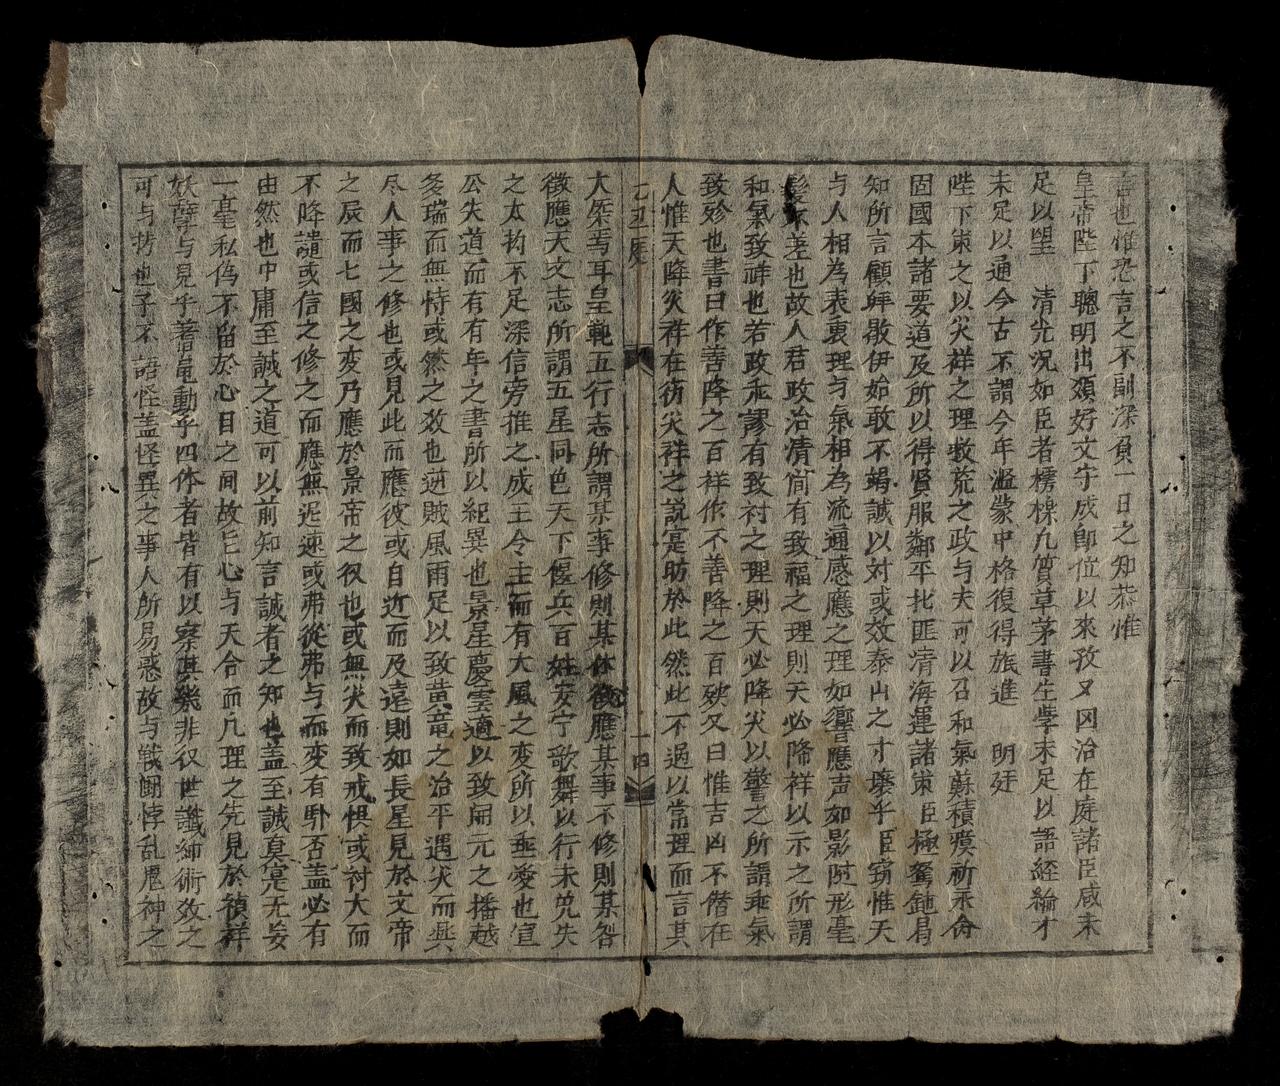 言也惟恐言之不副深負一日之知恭惟
皇帝陛下聰明出類好文守成即位以來孜又図治在庭諸臣咸未
足以望　清光况如臣者樗櫟凡質草茅書生學未足以語經綸才
未足以通今古不謂今年濫蒙中格復得旅進　明廷
陛下策之以灾祥之理救荒之政与夫可以召和氣蘇積瘼祈永命
固國本諸要道及所以得賢服鄰平北匪清海運諸策臣極駑鈍局
知所言顧歸敭伊始敢不竭誠以対或效泰山之寸壤乎臣窃惟天
与人相為表裏理与氣相為流通感應之理如響應声如影随形毫
髮不差也故人君政治清简有致福之理則天必降祥以示之所謂
和氣致祥也若政乖謬有致対之理則天必降灾以警之所謂乖氣
致殄也書曰作善降之百祥作不善降之百殃又曰惟吉凶不僭在
人惟天降灾祥在德灾祥之説寔昉於此然此不過以常理而言其
乙丑庭　一四
大槩焉耳皇範五行志所謂某事修則某休徵應某事不修則某咎
徵應天文志所謂五星同色天下偃兵百姓安宁歌舞以行未免失
之太拘不足深信旁推之成王令主而有大風之变所以垂愛也宣
公失道而有有年之書所以紀異也景星慶雲適以致開元之播越
矣瑞而無恃或然之效也逆賊風雨足以致黄竜之治平遇灾而與
尽人事之修也或見此而應彼或自近而及遠則如長星見於文帝
之辰而七國之变乃應於景帝之役也或無灾而致戒惧或対大而
不降譴或信之修之而應無遅速或弗從弗与而变有卧否盖必有
由然也中庸至誠之道可以前知言誠者之知也盖至誠真寔无妄
一毫私偽不留於心目之间故𠀋心与天合而凡理之先見於禎祥
妖孽与見乎蓍龟動乎四体者皆有以察其幾非役世讖緯術数之
可与拷也子不語怪盖怪異之事人所易惑故与戦闘悖乱鬼神之